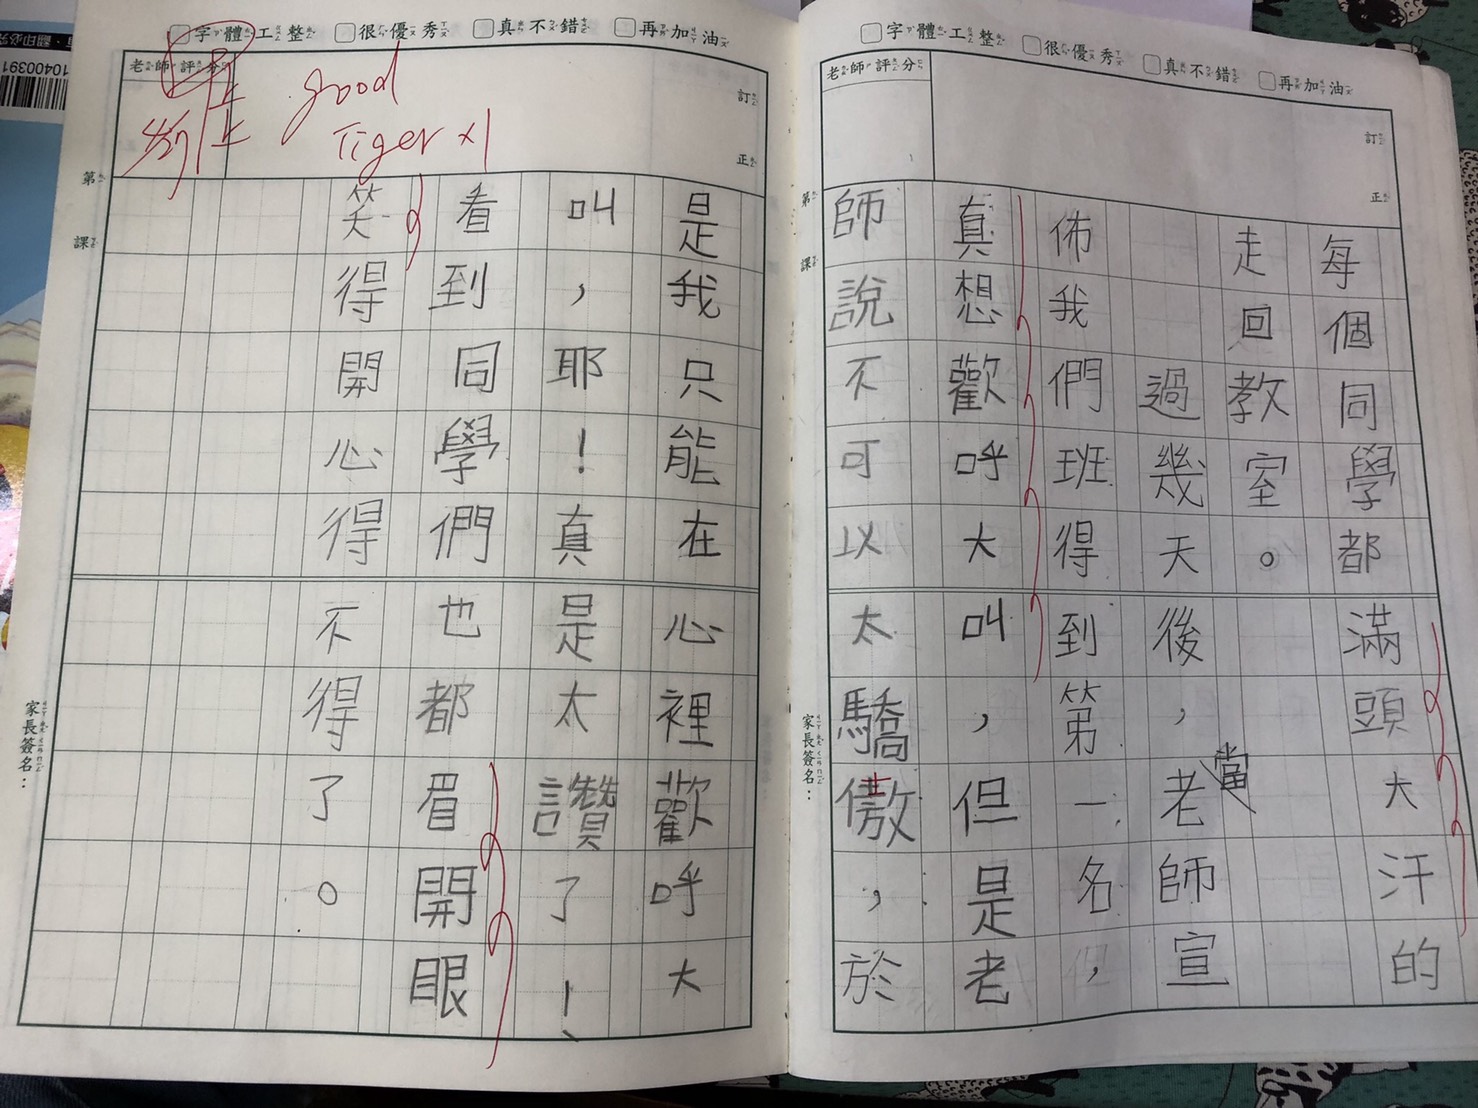 字體工整 很優秀 真不錯 再加油
老師評分
訂正
第 課
家長簽名：
每個同學都滿頭大汗的
走回教室。
過幾天後，老師宣
當
佈我們班得到第一名，
真想歡呼大叫，但是老
師說不可以太驕傲，於
字體工整 很優秀 真不錯 再加油
老師評分
good
Tiger x1
訂正
第 課
家長簽名：
是我只能在心裡歡呼大
叫，耶！真是太讚了！
看到同學們也都眉開眼
笑得開心得不得了。
10400391